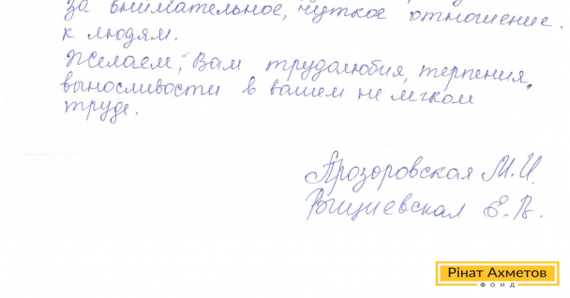 за внимательное, чуткое отношение.
к людям.
Желаем, Вам трудолюбия, терпения,
выносливости в вашем не легком
труде.
Прозоровская М.И.
Вищневская Е.В.
Рінат Ахметов
ФОНД